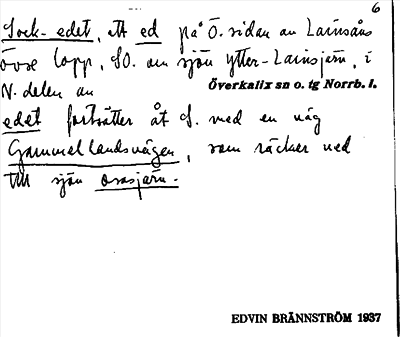 6
Sock-edet, ett ed på Ö. sidan av Lainsåns
övre lopp, SO. om sjön Ytter-Lainsjärn, i
N. delen av Överkalix sn o. tg Norrb. l.
edet fortsätter åt S. med en väg
Gammellandsvägen, som räcker ned
till sjön Orrsjärn.
EDVIN BRÄNNSTRÖM 1937